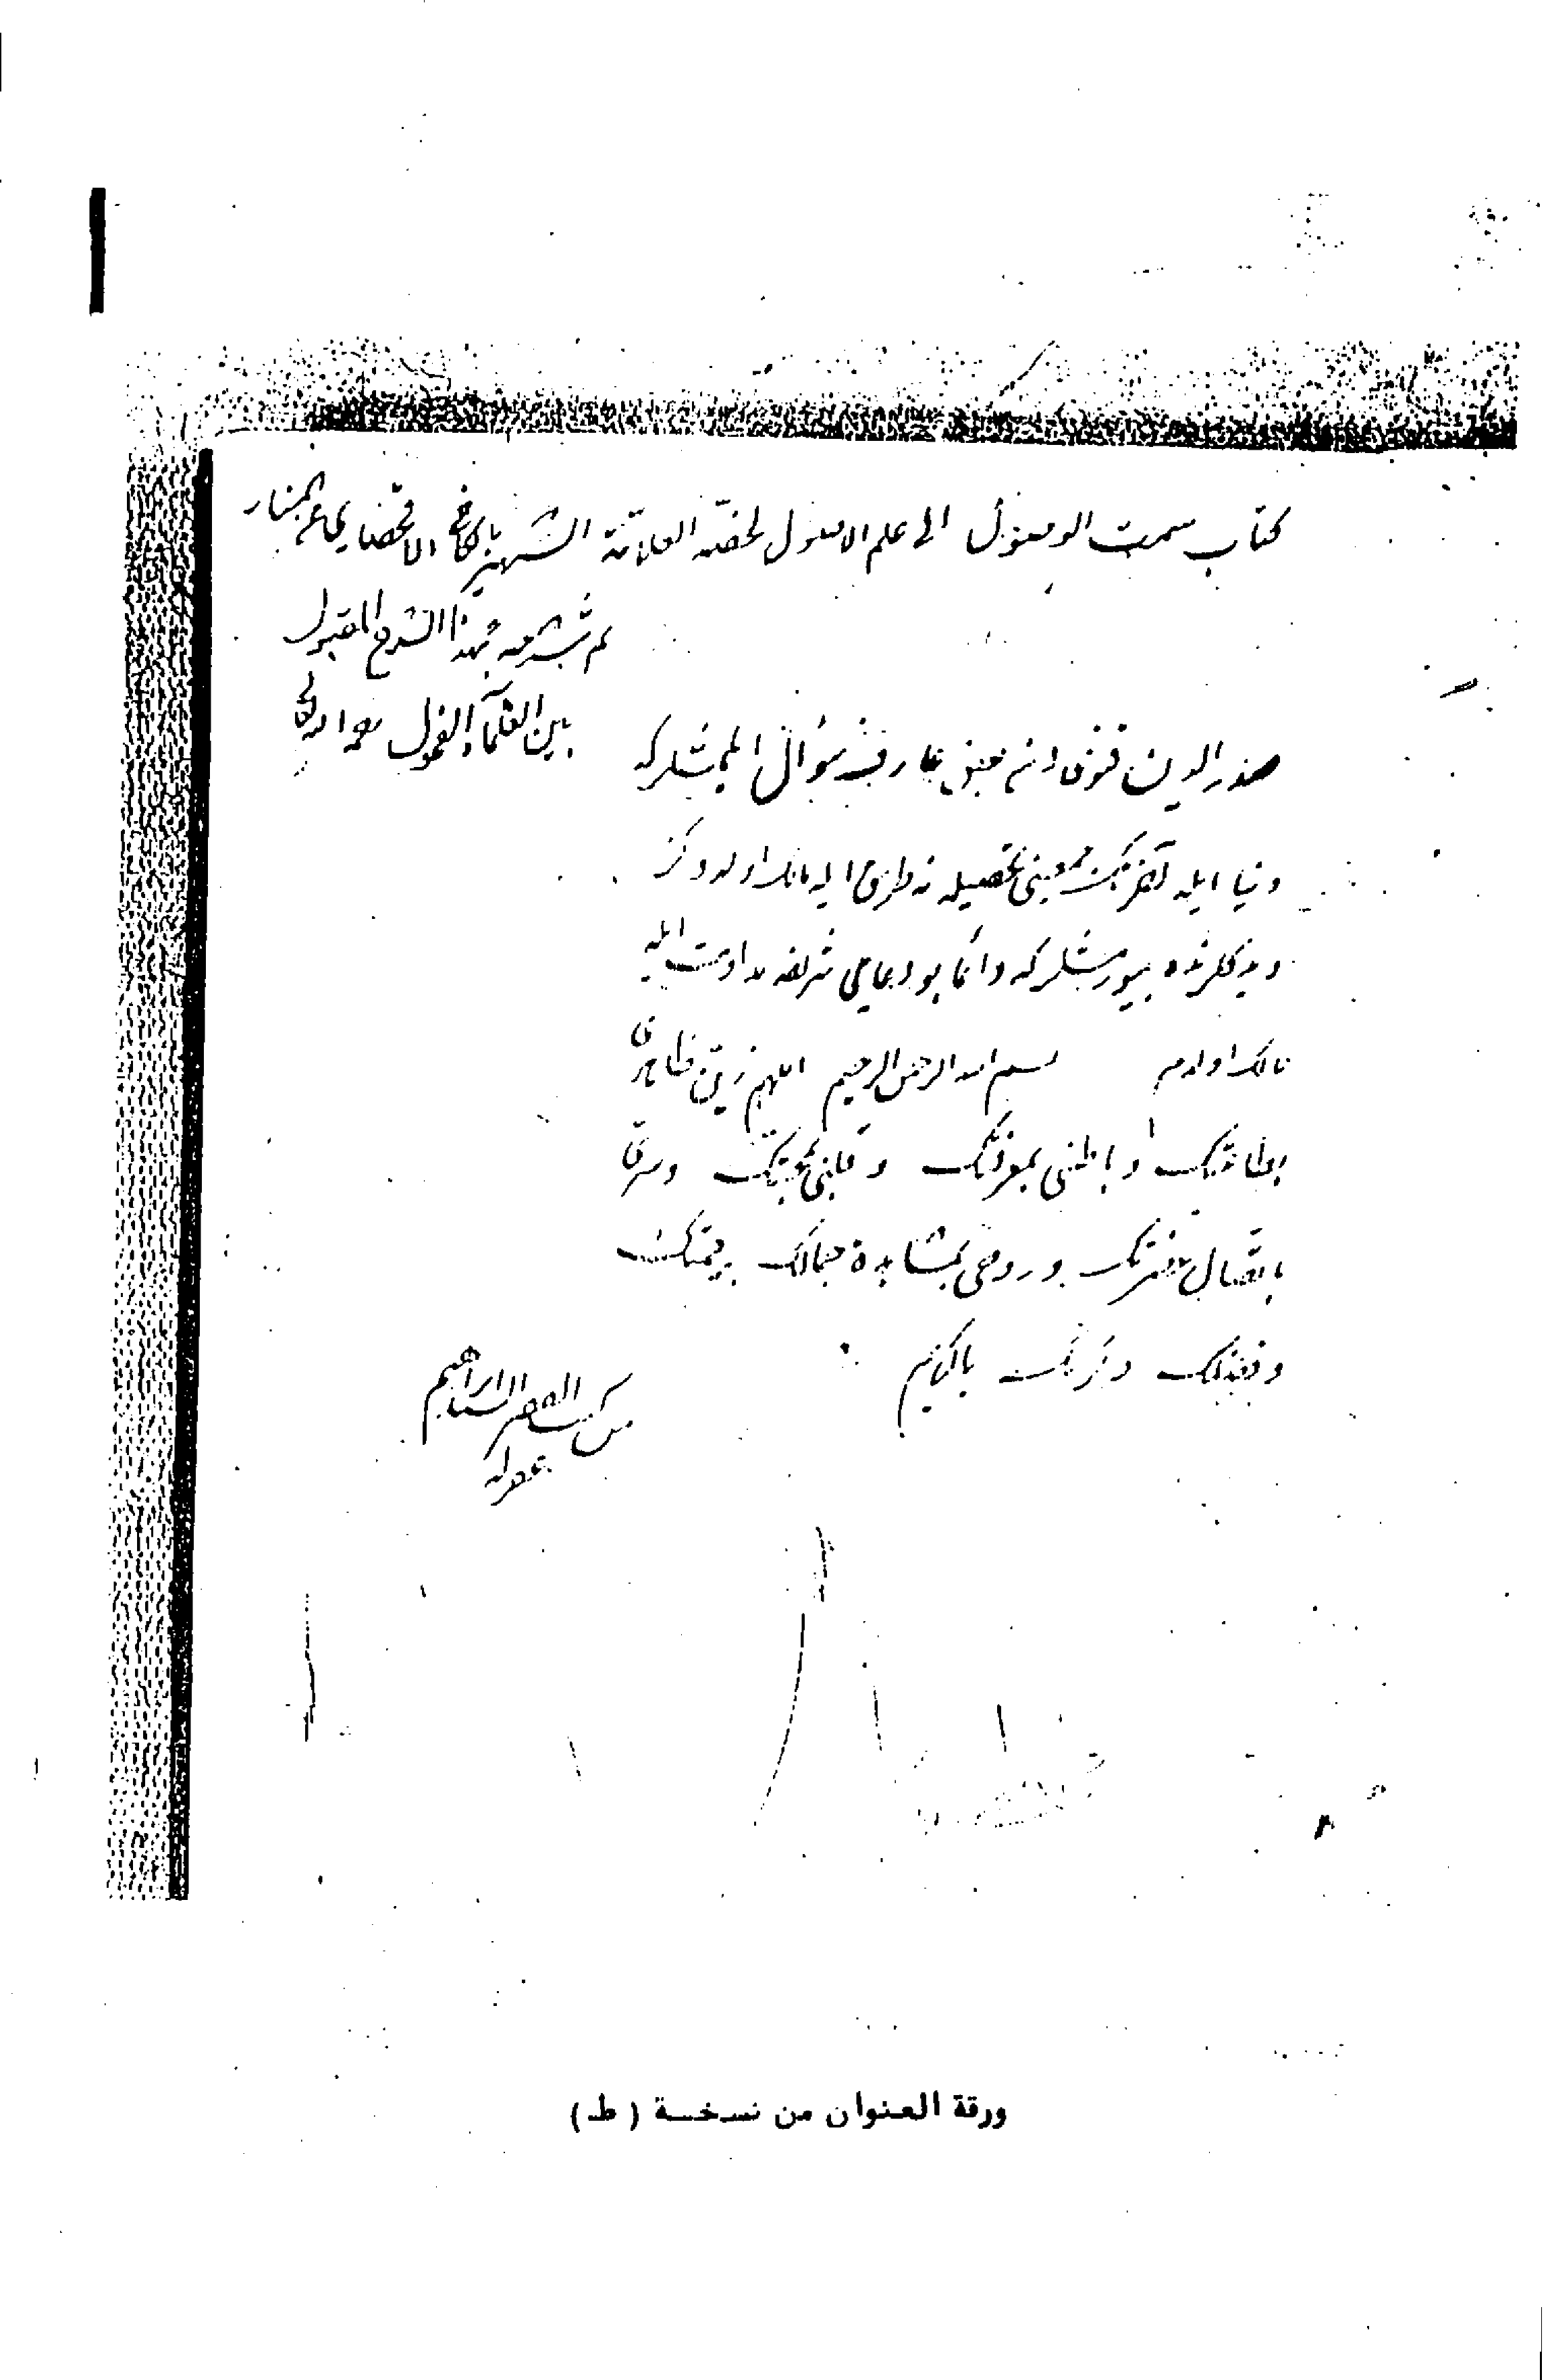 كتاب سمت الوصول الى علم الاصول لخصه العلامة الشهير بالكافي الاقحصاري عن المنار
ثم شرحه بهذا الشرح المقبول
بين العلماء الفحول
صدر الدين قنوى بعض عارف سؤال ايتمشلركه
دنيا ايله آخرتك تحصيله نه طريق ايله مالك اولدوكز
ديدكلرنده بيورمشلركه دائما بو دعاى شريفه مداومت ايله
مالك اولدم بسم الله الرحمن الرحيم اللهم زين ظاهرى
بطاعتك وباطنى بمعرفتك وقلبى بمحبتك وسرى
باتصال حضرتك وروحى بمشاهدة جمالك برحمتك
وفضلك وكرمك يا كريم
من كتب الفقير ابراهيم
ورقة العنوان من نسخة ( ط )